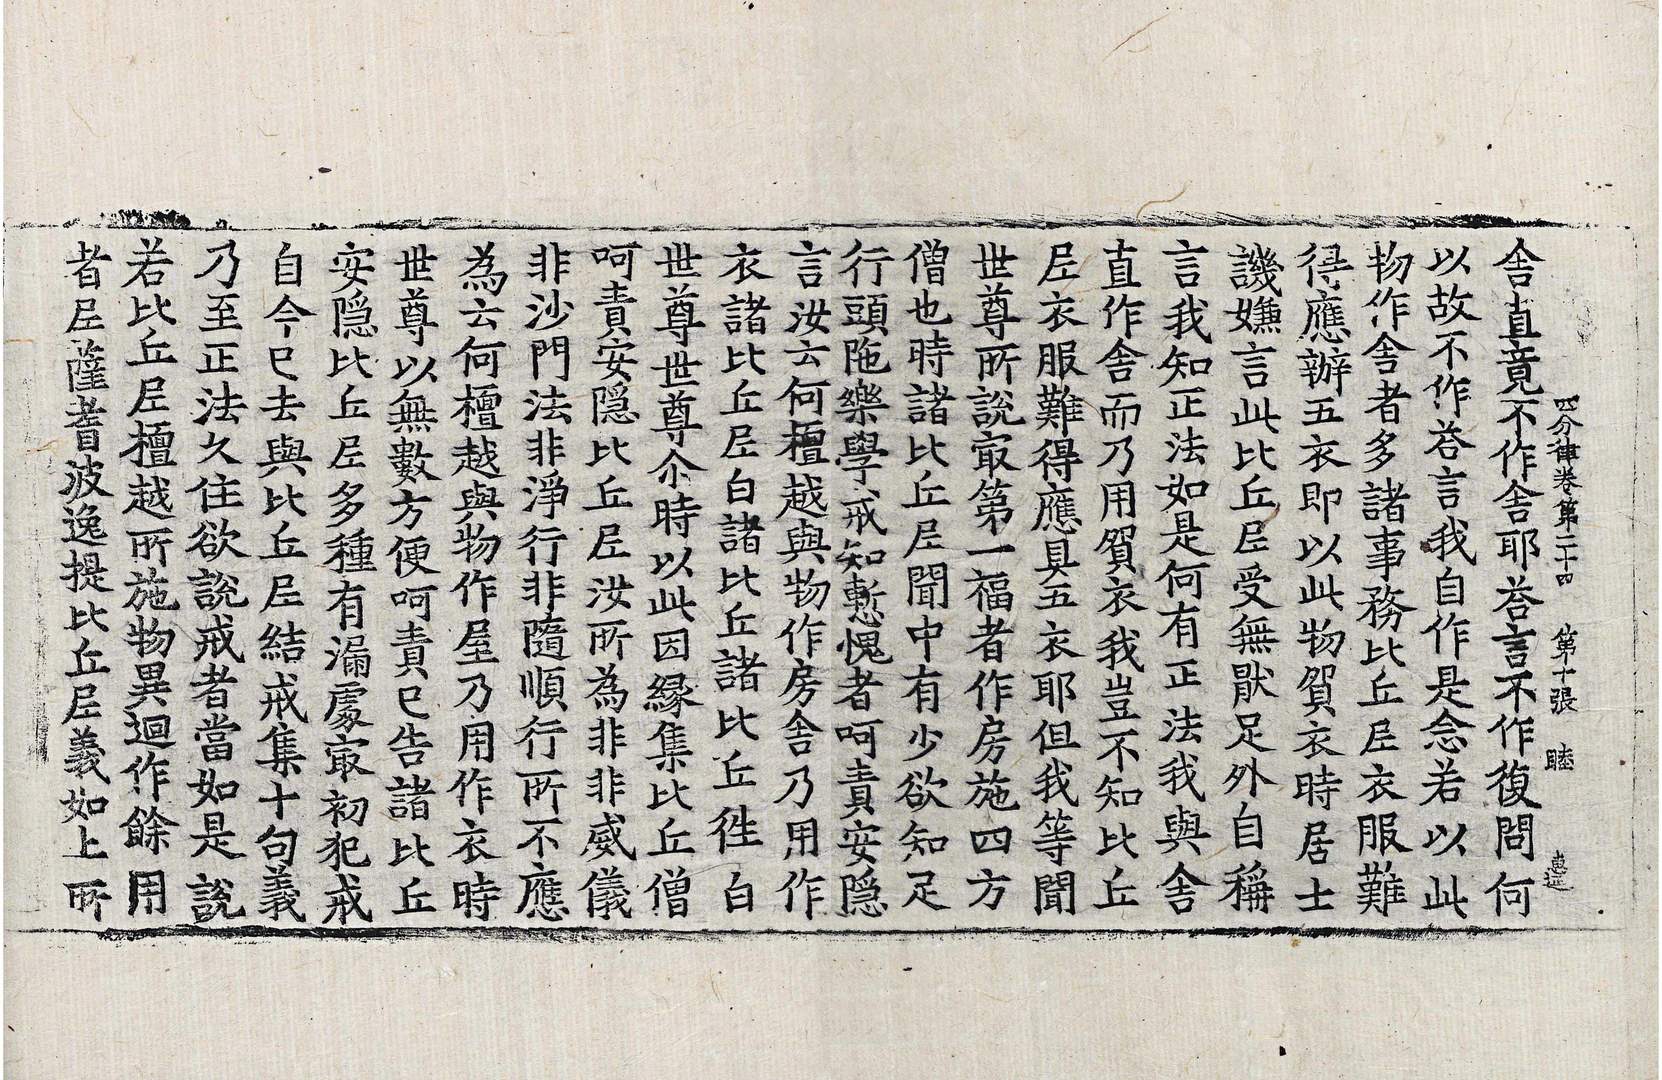 四分律卷第二十四　第十張　睦
舎直竟不作舎耶荅言不作復問何
以故不作荅言我自作是念若以此
物作舎者多諸事務比丘尼衣服難
得應辦五衣即以此物貿衣時居士
譏嫌言此比丘尼受無猒足外自稱
言我知正法如是何有正法我與舎
直作舎而乃用貿衣我豈不知比丘
尼衣服難得應具五衣耶但我等聞
世尊所說㝡第一福者作房施四方
僧也時諸比丘尼聞中有少欲知足
行頭陁樂學戒知慙愧者呵責安隱
言汝云何檀越與物作房舎乃用作
衣諸比丘尼白諸比丘諸比丘徃白
世尊世尊尒時以此因緣集比丘僧
呵責安隱比丘尼汝所為非非威儀
非沙門法非淨行非隨順行所不應
為云何檀越與物作屋乃用作衣時
世尊以無數方便呵責已告諸比丘
安隱比丘尼多種有漏處㝡初犯戒
自今已去與比丘尼結戒集十句義
乃至正法久住欲說戒者當如是說
若比丘尼檀越所施物異迴作餘用
者尼薩耆波逸提比丘尼義如上所